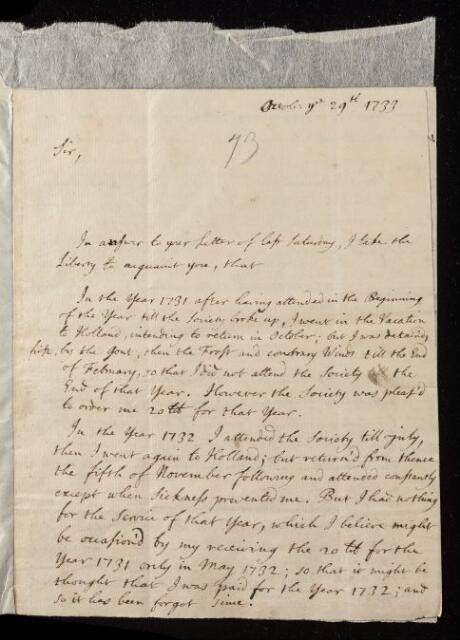 ye 29th 1733
73
Sir,
In answer to your Letter of last Saturday, I take the
Liberty to acquaint you, that
In the Year 1731 after having attended in the Beginning
of the Year till the Society broke up, I went in the Vacation
to Holland, intending to return in October; but I was detained,
first, by the Gout, then the Frost and contrary Winds till the End
of February, so that I did not attend the Society the
End of that Year. However the Society was pleas'd
to order me 20 tt for that Year.
In the Year 1732 I attended the Society till July,
then I went again to Holland; but return'd from thence
the fifth of November following and attended constantly
except when Sickness prevented me. But I had nothing
for the Service of that Year, which I believe might
be occasion'd by my receiving the 20 tt for the
Year 1731 only in May 1732; so that it might be
thought that I was paid for the Year 1732; and
so it has been forgot since.